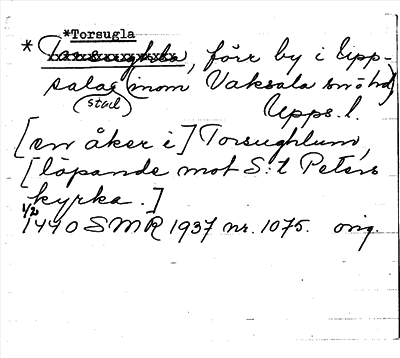 *Torsugla
* Torsughla, förr by i Upp-
sala (inom Vaksala sn o hd)
(stad) Upps. l.
[en åker i] Torsughlum,
[löpande mot S:t Peters
kyrka.]
1/2
1440 SMR 1937 nr. 1075. orig